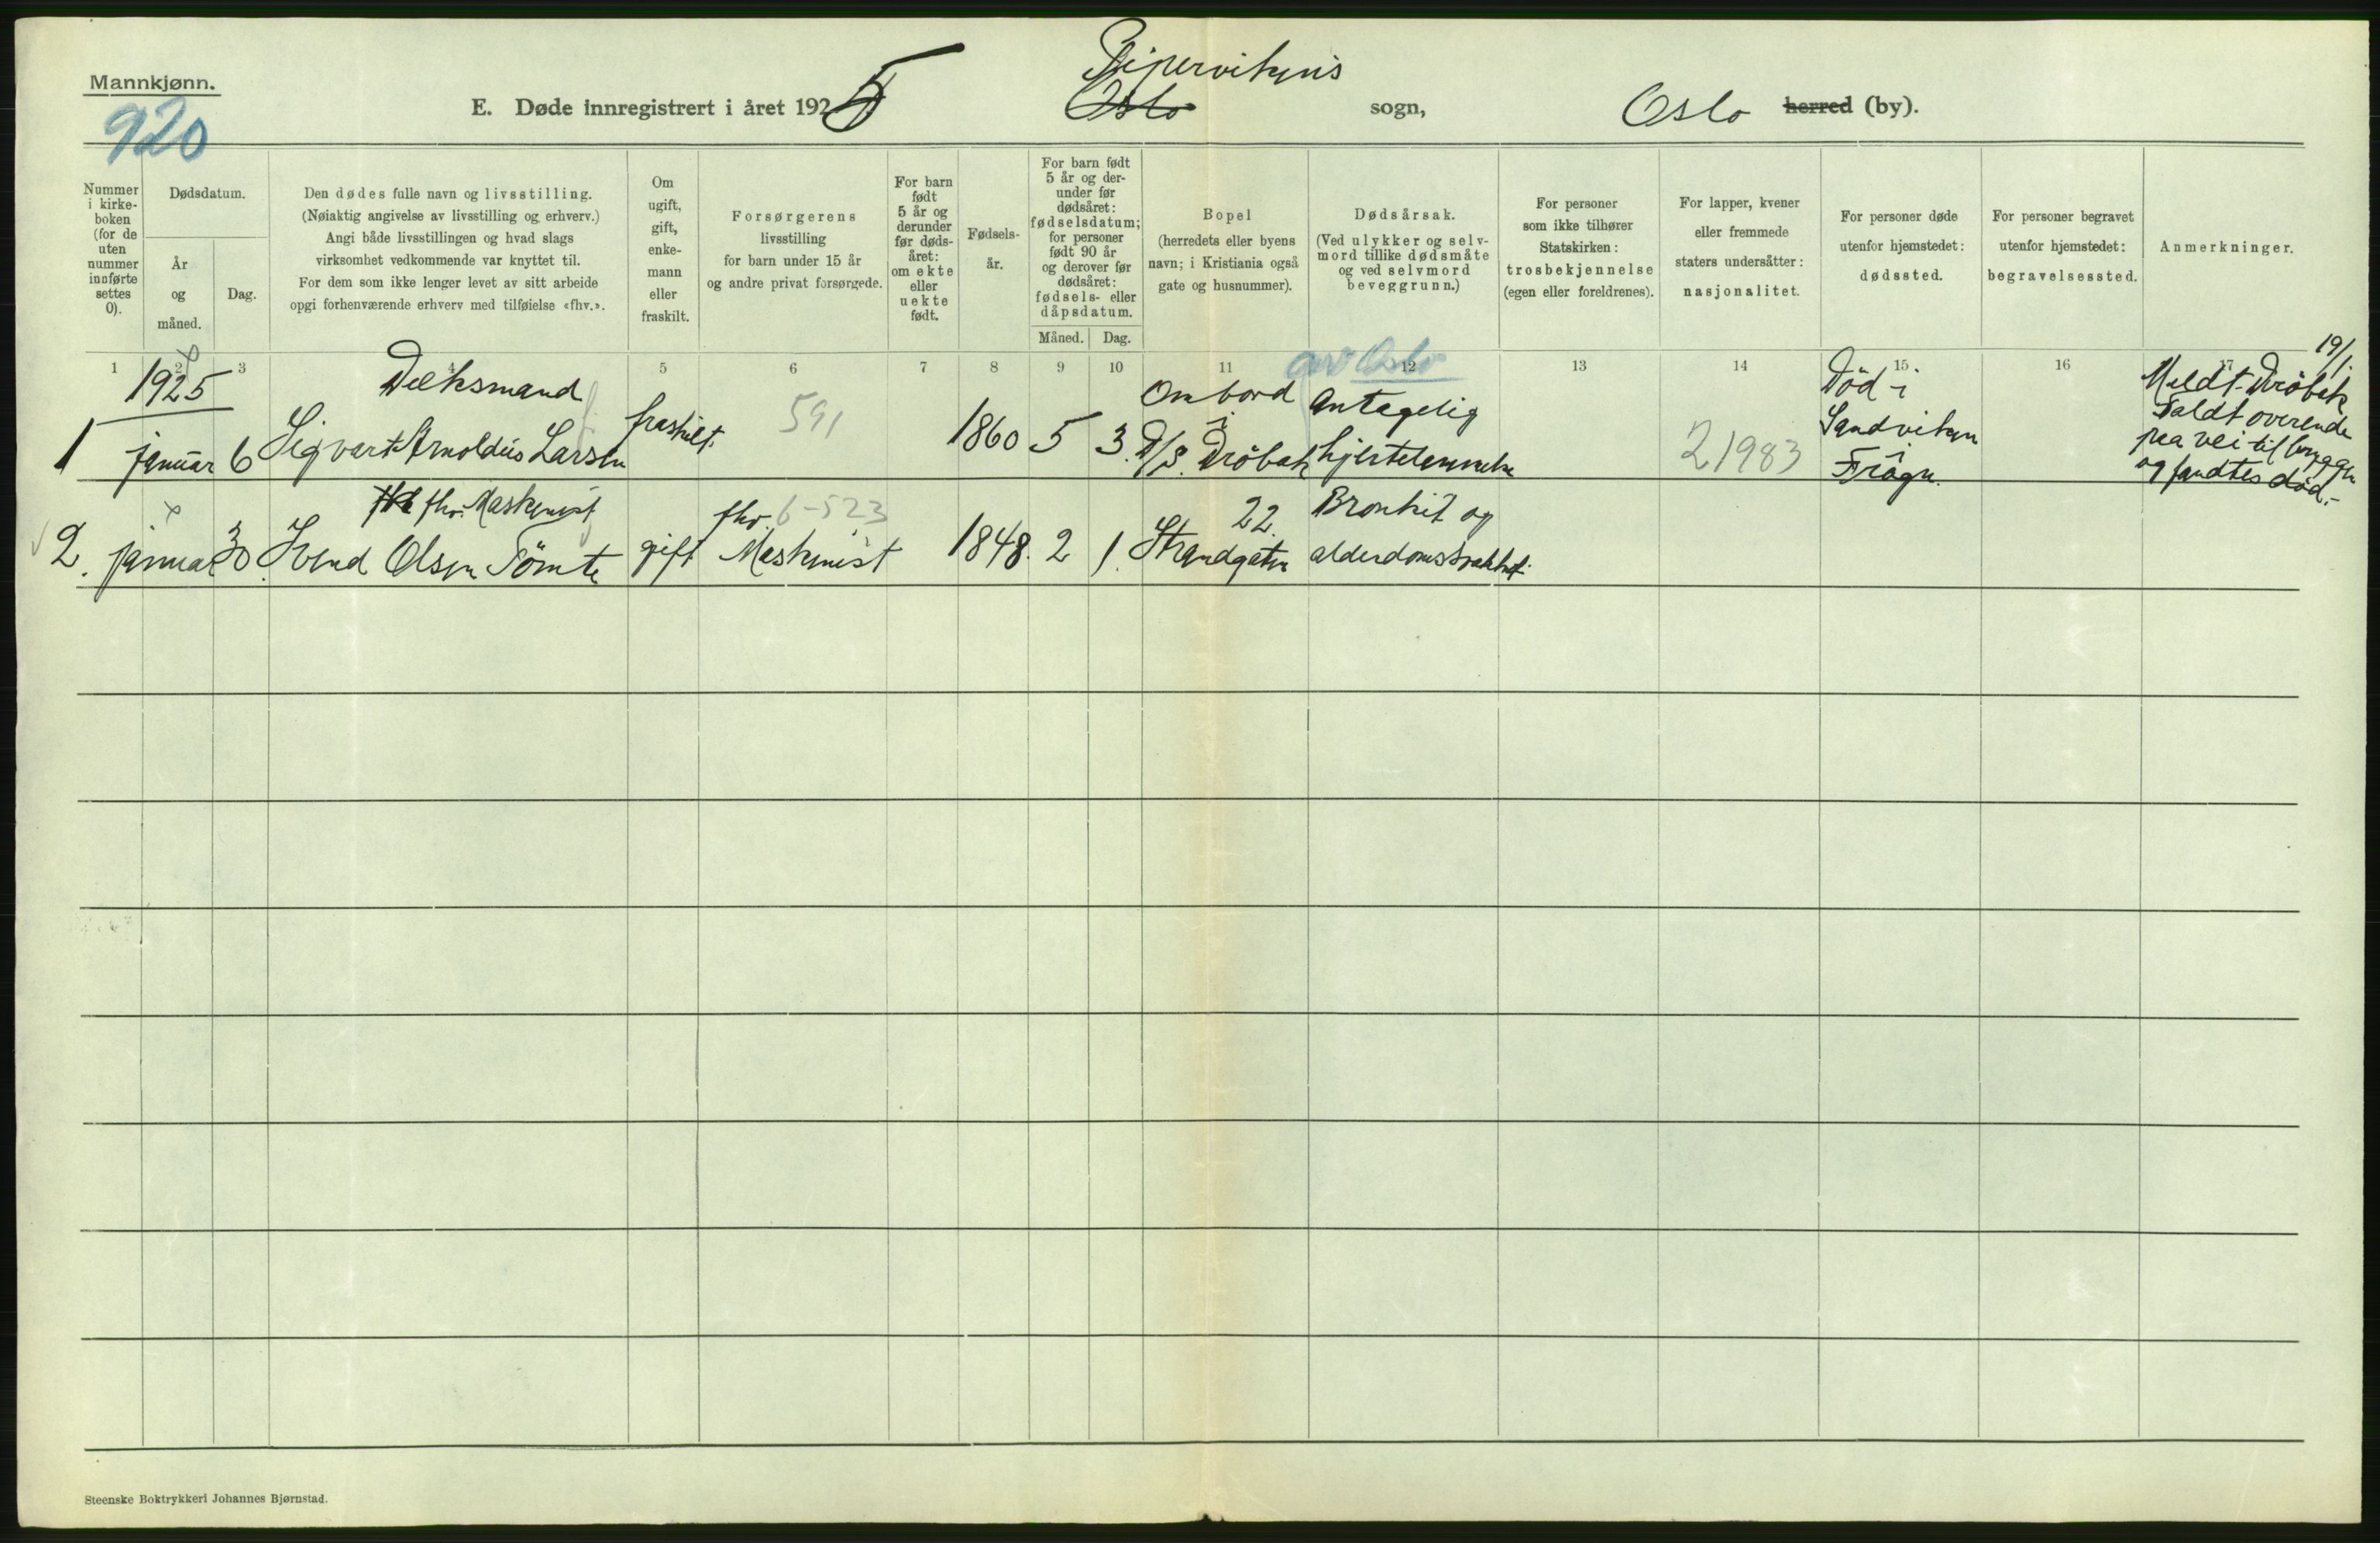 Mannkjønn.
920
E. Døde innregistrert i året 1925
Pipervikens
Oslo
sogn,
Oslo herred (by).
Nummer
i kirke-
boken
(for de
uten
nummer
innførte
settes
0).
Dødsdatum.
År
og
måned.
Dag.
Den dødes fulle navn og livsstilling.
(Nøiaktig angivelse av livsstilling og erhverv.)
Angi både livsstillingen og hvad slags
virksomhet vedkommende var knyttet til.
For dem som ikke lenger levet av sitt arbeide
opgi forhenværende erhverv med tilføielse «fhv.».
Om
ugift,
gift,
enke-
mann
eller
fraskilt.
Forsørgerens
livsstilling
for barn under 15 år
og andre privat forsørgede.
For barn
født
5 år og
derunder
før døds-
året:
om ekte
eller
uekte
født.
Fødsels-
år.
For barn født
5 år og der-
under før
dødsåret:
fødselsdatum;
for personer
født 90 år
og derover før
dødsåret:
fødsels- eller
dåpsdatum.
Måned. Dag.
Bopel
(herredets eller byens
navn; i Kristiania også
gate og husnummer).
Dødsårsak.
(Ved ulykker og selv-
mord tillike dødsmåte
og ved selvmord
beveggrunn.)
For personer
som ikke tilhører
Statskirken:
trosbekjennelse
(egen eller foreldrenes).
For lapper, kvener
eller fremmede
staters undersåtter:
nasjonalitet.
For personer døde
utenfor hjemstedet:
dødssted.
For personer begravet
utenfor hjemstedet:
begravelsessted.
Anmerkninger.
1 2 3 4 5 6 7 8 9 10 11 12 13 14 15 16 17
1925
1
januar 6
Dæksmand
Sigvart Arnoldus Larsen
fraskilt.
591
1860 5 3.
Ombord
i
D/S. Dröbak
Oslo
Antagelig
hjertelammelse
21983
Död i
Sandviken
i
Frogn.
19/1
Meldt Dröbak
Faldt overende
paa vei til bryggen
og fandtes död.-
2. januar 30
fhv. Maskinist
Svend Olsen Tömte
gift
fhv. 6-523
Maskinist
1848. 2 1.
22
Strandgaten
Bronkit og
alderdomssvakhet.
Steenske Boktrykkeri Johannes Bjørnstad.